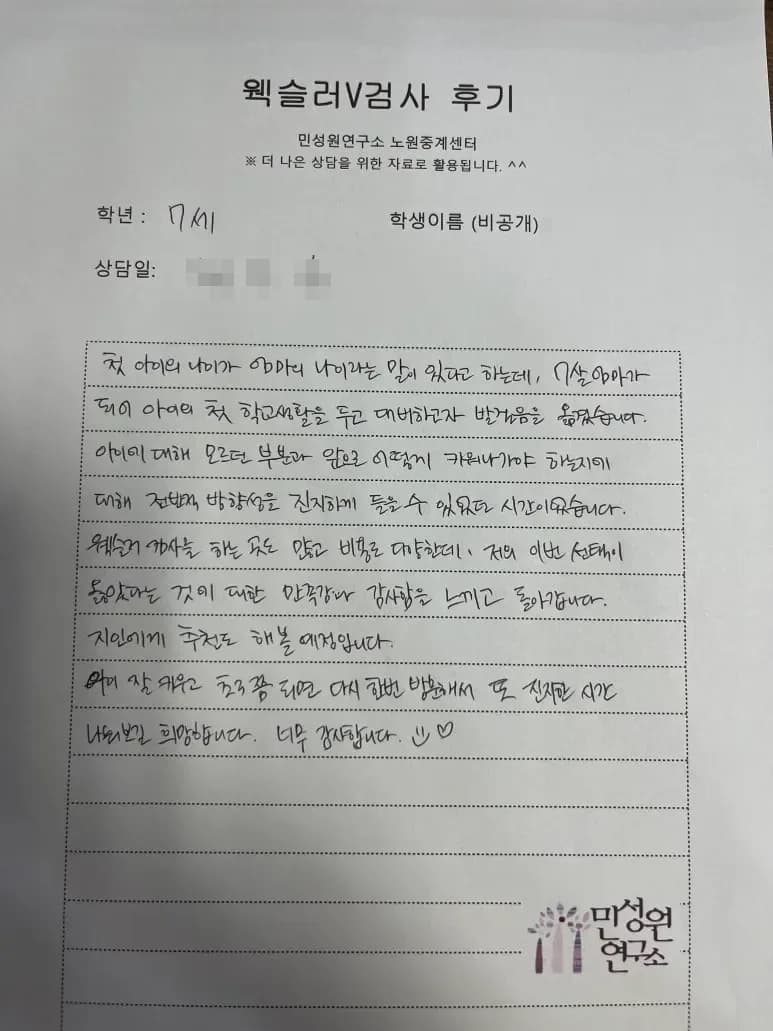 웩슬러V검사 후기
민성원연구소 노원중계센터
※ 더 나은 상담을 위한 자료로 활용됩니다. ^^
학년 : 7세
학생이름 (비공개)
상담일:
첫 아이의 나이가 엄마의 나이라는 말이 있다고 하는데, 7살엄마가
되어 아이의 첫 학교생활을 두고 대비하고자 발걸음을 옮겼습니다.
아이에 대해 모르던 부분과 앞으로 어떻게 키워나가야 하는지에
대해 전반적 방향성을 진지하게 들을 수 있었던 시간이었습니다.
웩슬러 검사를 하는 곳도 많고 비용도 다양한데, 저의 이번 선택이
옳았다는 것에 대한 만족감과 감사함을 느끼고 돌아갑니다.
지인에게 추천도 해볼 예정입니다.
아이 잘 키우고 초3쯤 되면 다시 한번 방문해서 또 진지한 시간
나눠보길 희망합니다. 너무 감사합니다. ♡
민성원
연구소